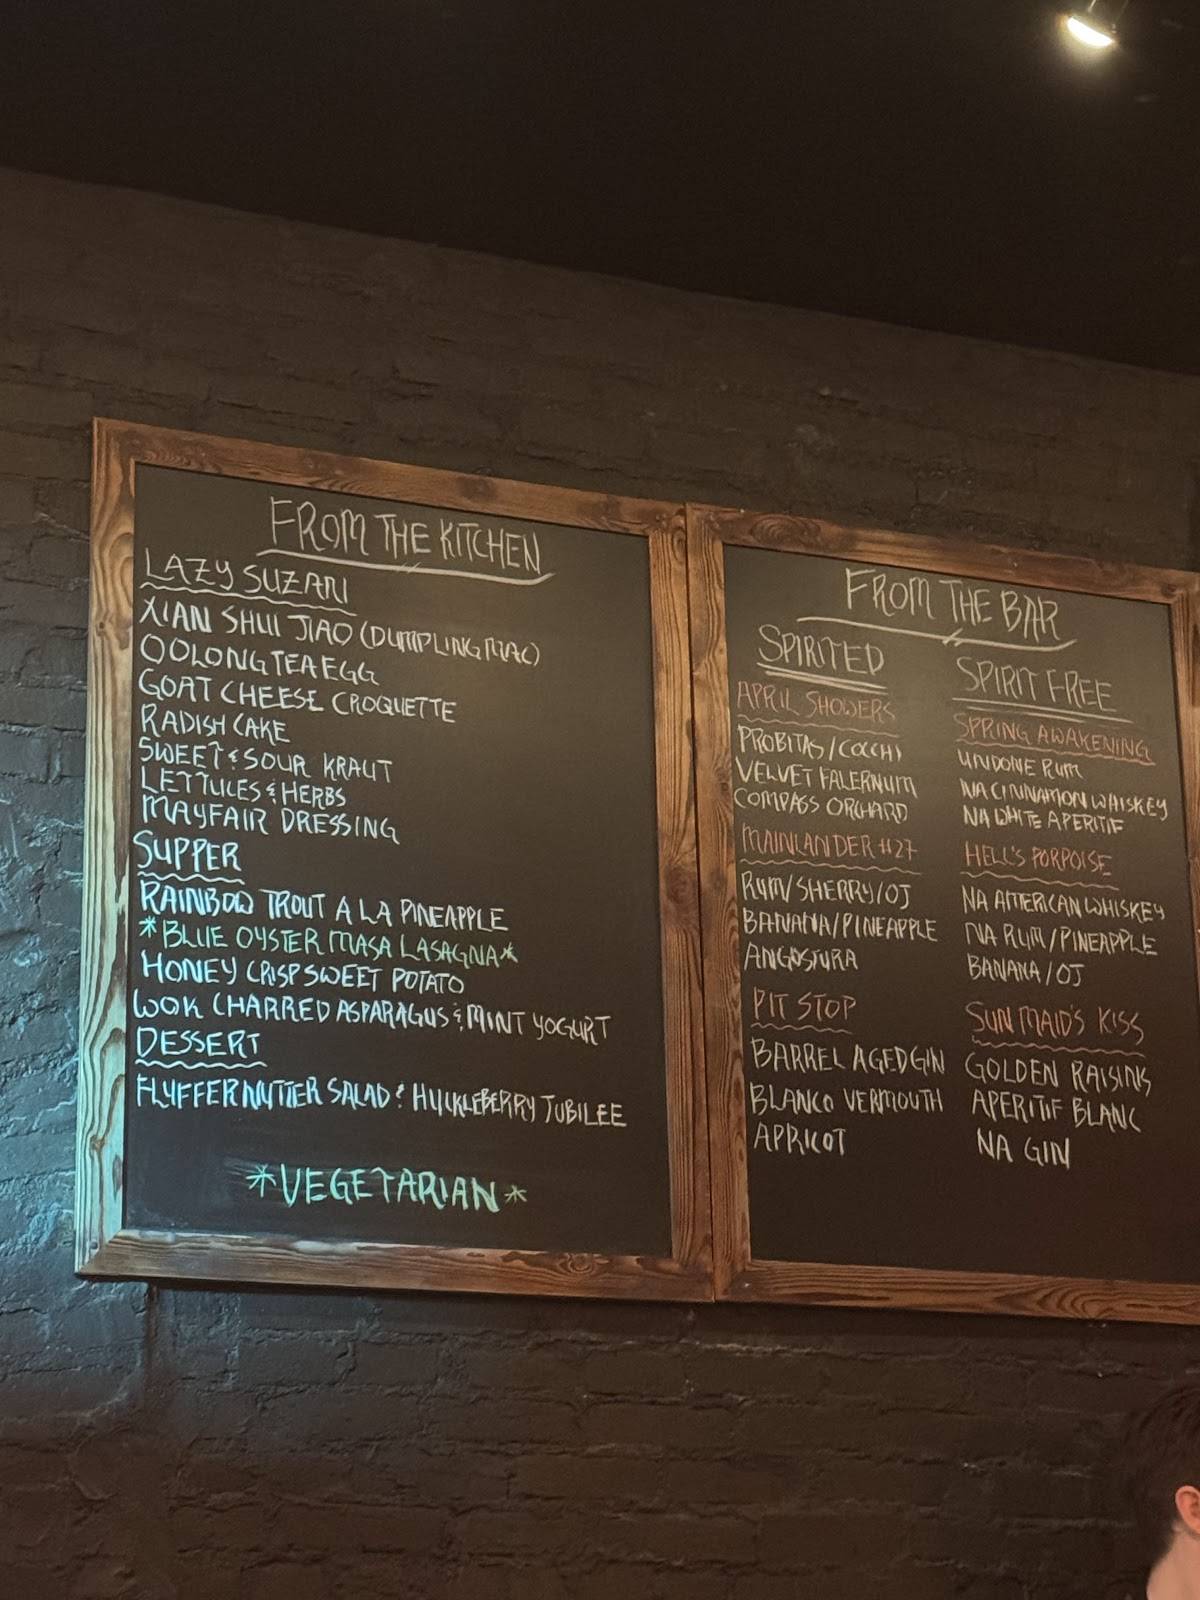 FROM THE KITCHEN
LAZY SUZAN
XIAN SHUI JIAO (DUMPLING MAC)
OOLONG TEA EGG
GOAT CHEESE CROQUETTE
RADISH CAKE
SWEET & SOUR KRAUT
LETTUCES & HERBS
MAYFAIR DRESSING
SUPPER
RAINBOW TROUT A LA PINEAPPLE
*BLUE OYSTER MASA LASAGNA*
HONEY CRISP SWEET POTATO
WOK CHARRED ASPARAGUS & MINT YOGURT
DESSERT
FLUFFERNUTTER SALAD & HUCKLEBERRY JUBILEE
*VEGETARIAN*
FROM THE BAR
SPIRITED
APRIL SHOWERS
PROBITAS/COCCHI
VELVET FALERNUM
COMPASS ORCHARD
MAINLANDER #27
RUM/SHERRY/OJ
BANANA/PINEAPPLE
ANGOSTURA
PIT STOP
BARREL AGED GIN
BLANCO VERMOUTH
APRICOT
SPIRIT FREE
SPRING AWAKENING
UNDONE RUM
NA CINNAMON WHISKEY
NA WHITE APERITIF
HELL'S PORPOISE
NA AMERICAN WHISKEY
NA RUM/PINEAPPLE
BANANA/OJ
SUN MAID'S KISS
GOLDEN RAISINS
APERITIF BLANC
NA GIN